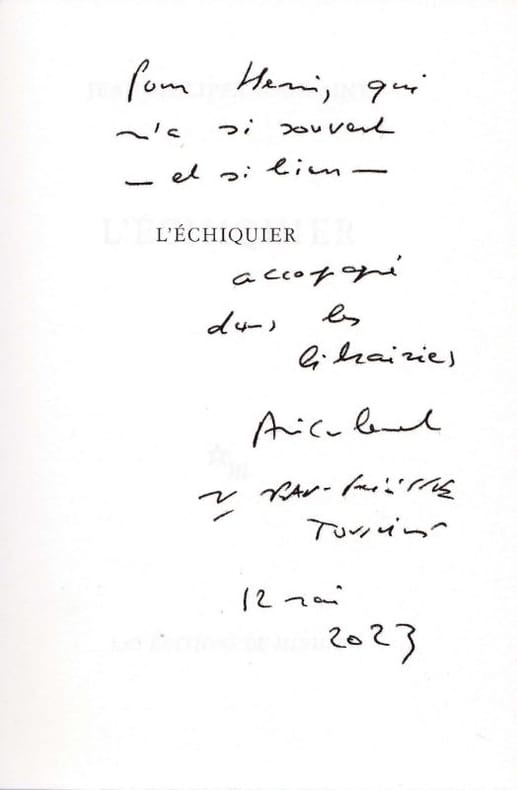 Pour Henri, qui
m'a si souvent
— et si bien —
L'ÉCHIQUIER
accompagné
dans les
librairies
Amicalement
Jean-Philippe
Toussaint
12 mai
2023